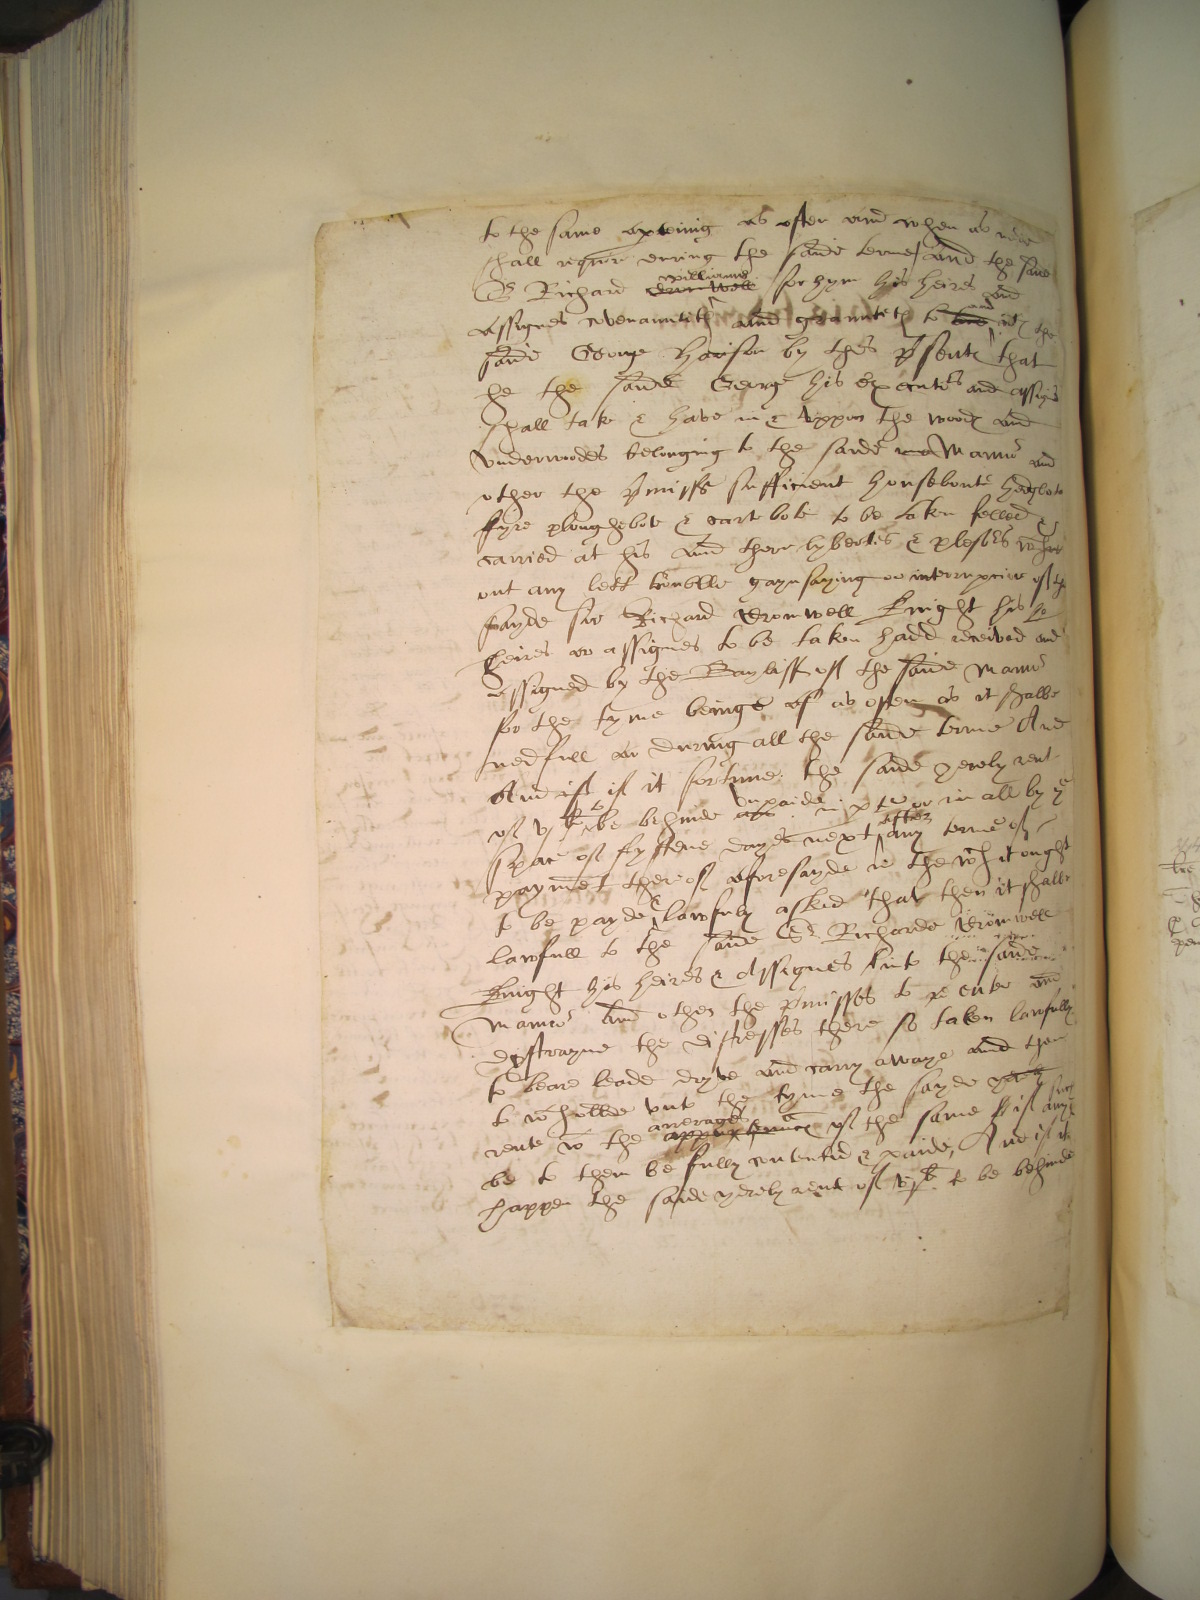 to the same as often and when as nede
shall requir during the saide terme And the saide
Sr Richard Cromwell williams for hym his heires and
Assignes covenauntith and grauntith to and wt the
saide George Harison by thes psentℯ that
he the saide George his executors and assigns
shall take & have in & uppon the woodℯ and
underwoodes belonging to the saide Manor and
other the pmisses sufficient housebote hedgbote
fyre ploughebote & cartbote to be taken felled &
carried at his and there lyberties & plesrs wth
out any lett trouble gaynsaying or interrupcion of the
sayde sir Richard Cromwell knight his
heires or assignes to be taken hadd received and
assigned by the Bayliff of the saide Manor
for the tyme beinge as often as it shalbe
nedfull during all the saide terme And
And if it fortune the saide yerely rent
of be behinde unpaide in pte or in all by ye
space of fyftene dayes next after any terme of
payment therof aforesayde in the wch it ought
to be payde & lawfuly asked that then it shalbe
lawfull to the saide Sr Richarde Cromwell
knight his heires & Assignes into the saide
Manor And other the pmisses to enter and
dystrayne the distresses there so taken lawfully
to beare leade dryve and cary awaye and them
to wtholde unto the tyme the sayde yerely
rente wt the arrerages of the same if any such
be to them be fully contentid & paide, And if it
happen the saide yerely rent of to be behinde